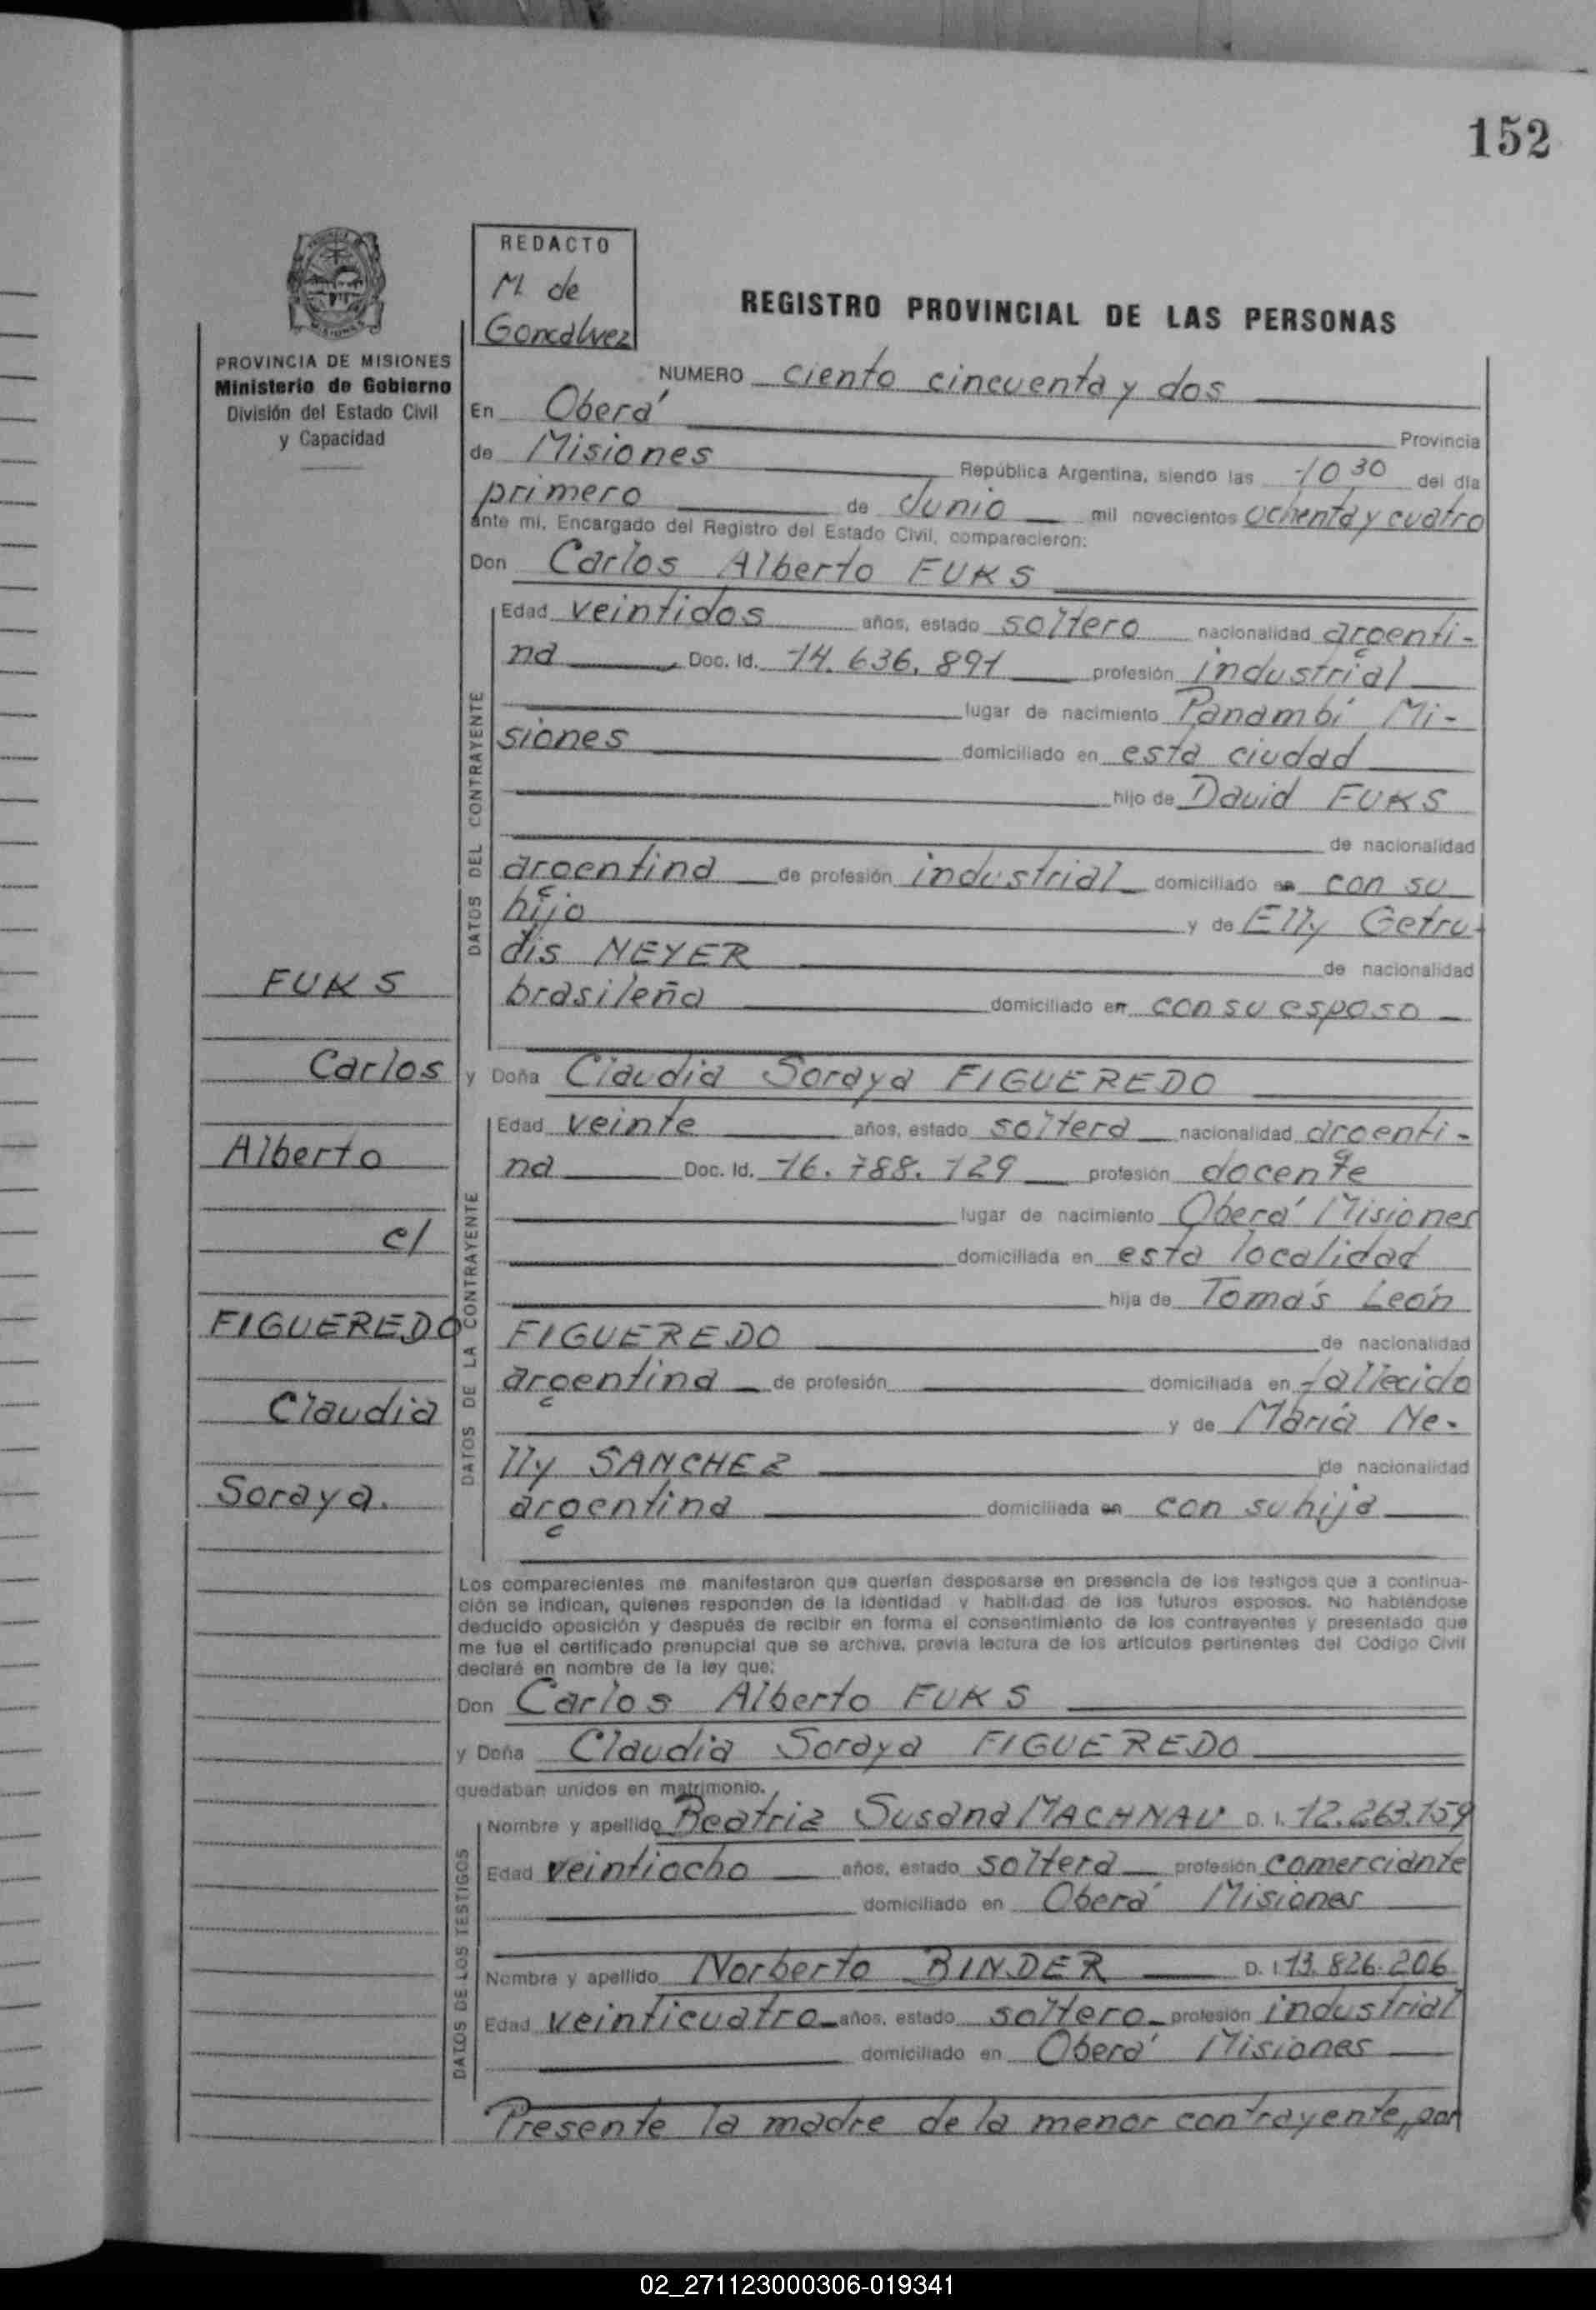 152
REDACTO
M. de
Goncalvez
REGISTRO PROVINCIAL DE LAS PERSONAS
PROVINCIA DE MISIONES
Ministerio de Gobierno
División del Estado Civil
y Capacidad
NUMERO ciento cincuenta y dos
En Oberá Provincia
de Misiones República Argentina, siendo las 10 30 del día
primero de Junio mil novecientos ochenta y cuatro
ante mi, Encargado del Registro del Estado Civil, comparecieron:
Don Carlos Alberto FUKS
DATOS DEL CONTRAYENTE
Edad veintidos años, estado soltero nacionalidad argenti-
na Doc. Id. 14.636.891 profesión industrial
lugar de nacimiento Panambí Mi-
siones domiciliado en esta ciudad
hijo de David FUKS
de nacionalidad
argentina de profesión industrial domiciliado en con su
hijo y de Elly Getru-
dis NEYER de nacionalidad
brasileña domiciliado en con su esposo
FUKS
Carlos
Alberto
c/
FIGUEREDO
Claudia
Soraya.
y Doña Claudia Soraya FIGUEREDO
DATOS DE LA CONTRAYENTE
Edad veinte años, estado soltera nacionalidad argenti-
na Doc. Id. 16.788.129 profesión docente
lugar de nacimiento Oberá Misiones
domiciliada en esta localidad
hija de Tomás León
FIGUEREDO de nacionalidad
argentina de profesión domiciliada en fallecido
y de María Ne-
lly SANCHEZ de nacionalidad
argentina domiciliada en con su hija
Los comparecientes me manifestaron que querían desposarse en presencia de los testigos que a continua-
ción se indican, quienes responden de la identidad y habilidad de los futuros esposos. No habiéndose
deducido oposición y después de recibir en forma el consentimiento de los contrayentes y presentado que
me fue el certificado prenupcial que se archiva, previa lectura de los artículos pertinentes del Código Civil
declaré en nombre de la ley que:
Don Carlos Alberto FUKS
y Doña Claudia Soraya FIGUEREDO
quedaban unidos en matrimonio.
DATOS DE LOS TESTIGOS
Nombre y apellido Beatriz Susana MACHNAU D. I. 12.263.159
Edad veintiocho años, estado soltera profesión comerciante
domiciliado en Oberá Misiones
Nombre y apellido Norberto BINDER D. I. 13.826.206
Edad veinticuatro años, estado soltero profesión industrial
domiciliado en Oberá Misiones
Presente la madre de la menor contrayente, por
02_271123000306-019341